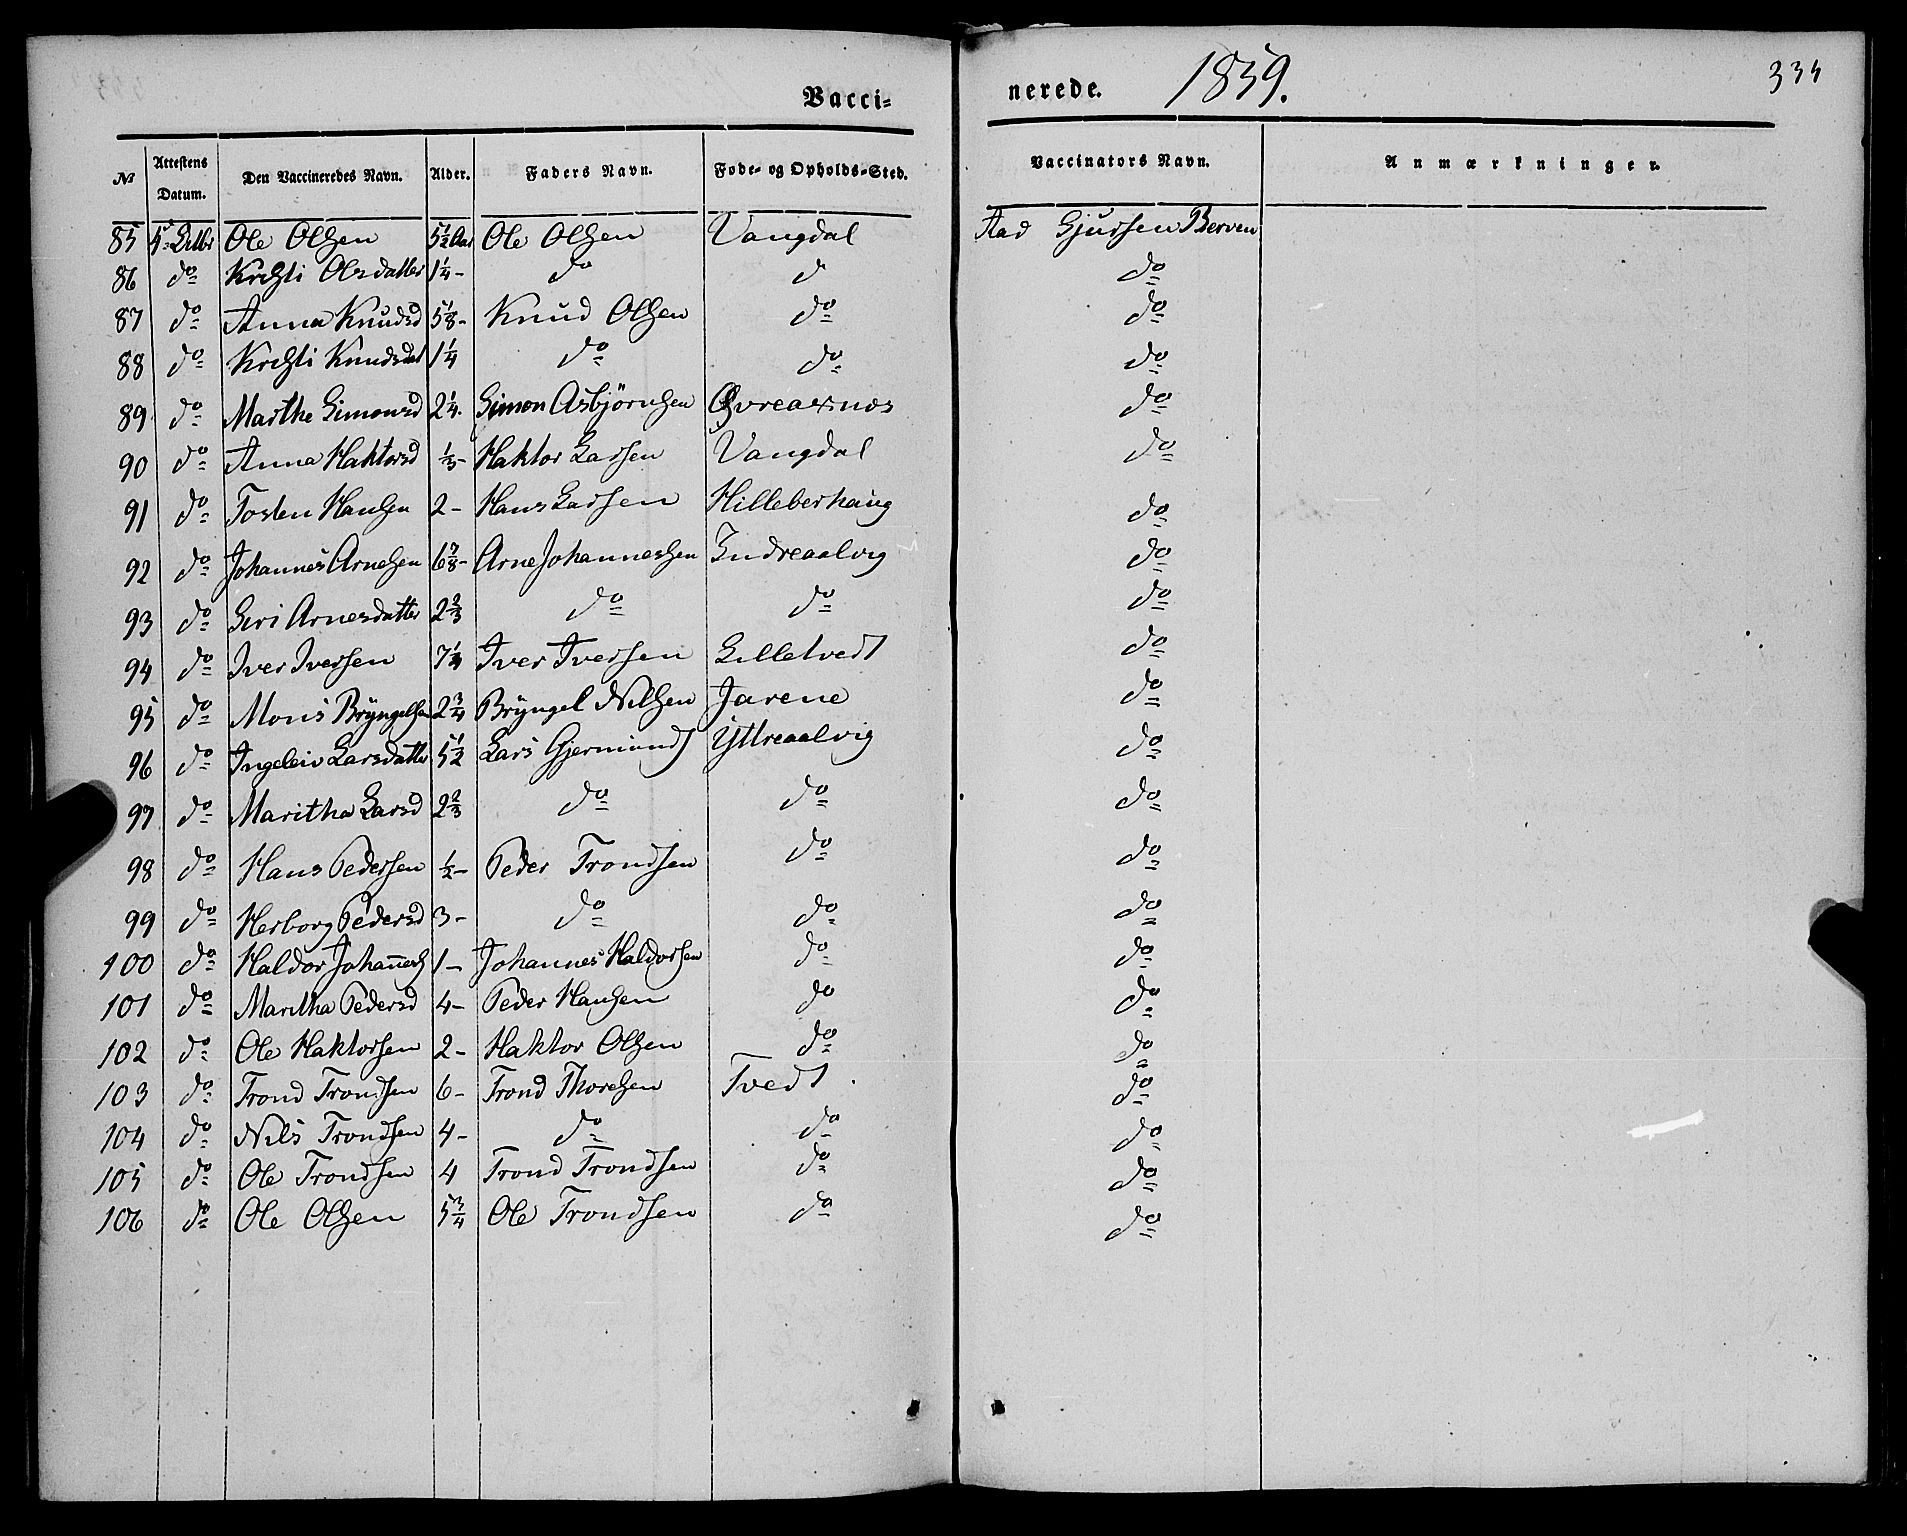 Vacci= nerede. 1839. 334
№ Attestens Datum. Den Vaccineredes Navn. Alder. Faders Navn. Føde- og Opholds-Sted. Vaccinators Navn. Anmærkninger.
85 Ole Olsen 5½ Aar Ole Olsen Vangdal Aad Gjursen Berven
86 do Kristi Olsdatter 1¼- do d do
87 do Anna Knudsd 5⅛- Knud Olsen do do
88 do Kristi Knudsdat 1¼ do do do
89 do Marthe Simonsd 2¼. Simon Asbjørnsen Øvreaxnæs do
90 do Anna Haktorsd ⅓- Haktor Larsen Vangdal do
91 do Tosten Hansen 2- Hans Larsen Hilleberhaug do
92 do Johannes Arnesen 6⅞- Arne Johannesen Indreaalvig do
93 do Siri Arnesdatter 2⅔ do do do
94 do Iver Iversen 7¼ Iver Iversen Lilletvedt do
95 do Mons Bryngelsen 2¾ Bryngel Nilsen Jarene do
96 do Ingeleiv Larsdatter 5½ Lars Gjermunds Yttreaalvig do
97 do Maritha Larsd 2⅔ do do do
98 do Hans Pedersen ½- Peder Trondsen do do
99 do Herborg Pedersd 3- do do do
100 do Haldor Johannes 1- Johannes Haldorsen do do
101 do Maritha Pedersd 4- Peder Hansen do do
102 do Ole Haktorsen 2- Haktor Olsen do do
103 do Trond Trondsen 6- Trond Thoresen Tvedt do
104 do Nils Trondsen 4- do do do
105 do Ole Trondsen 4 Trond Trondsen do do
106 do Ole Olsen 5¾ Ole Trondsen do do